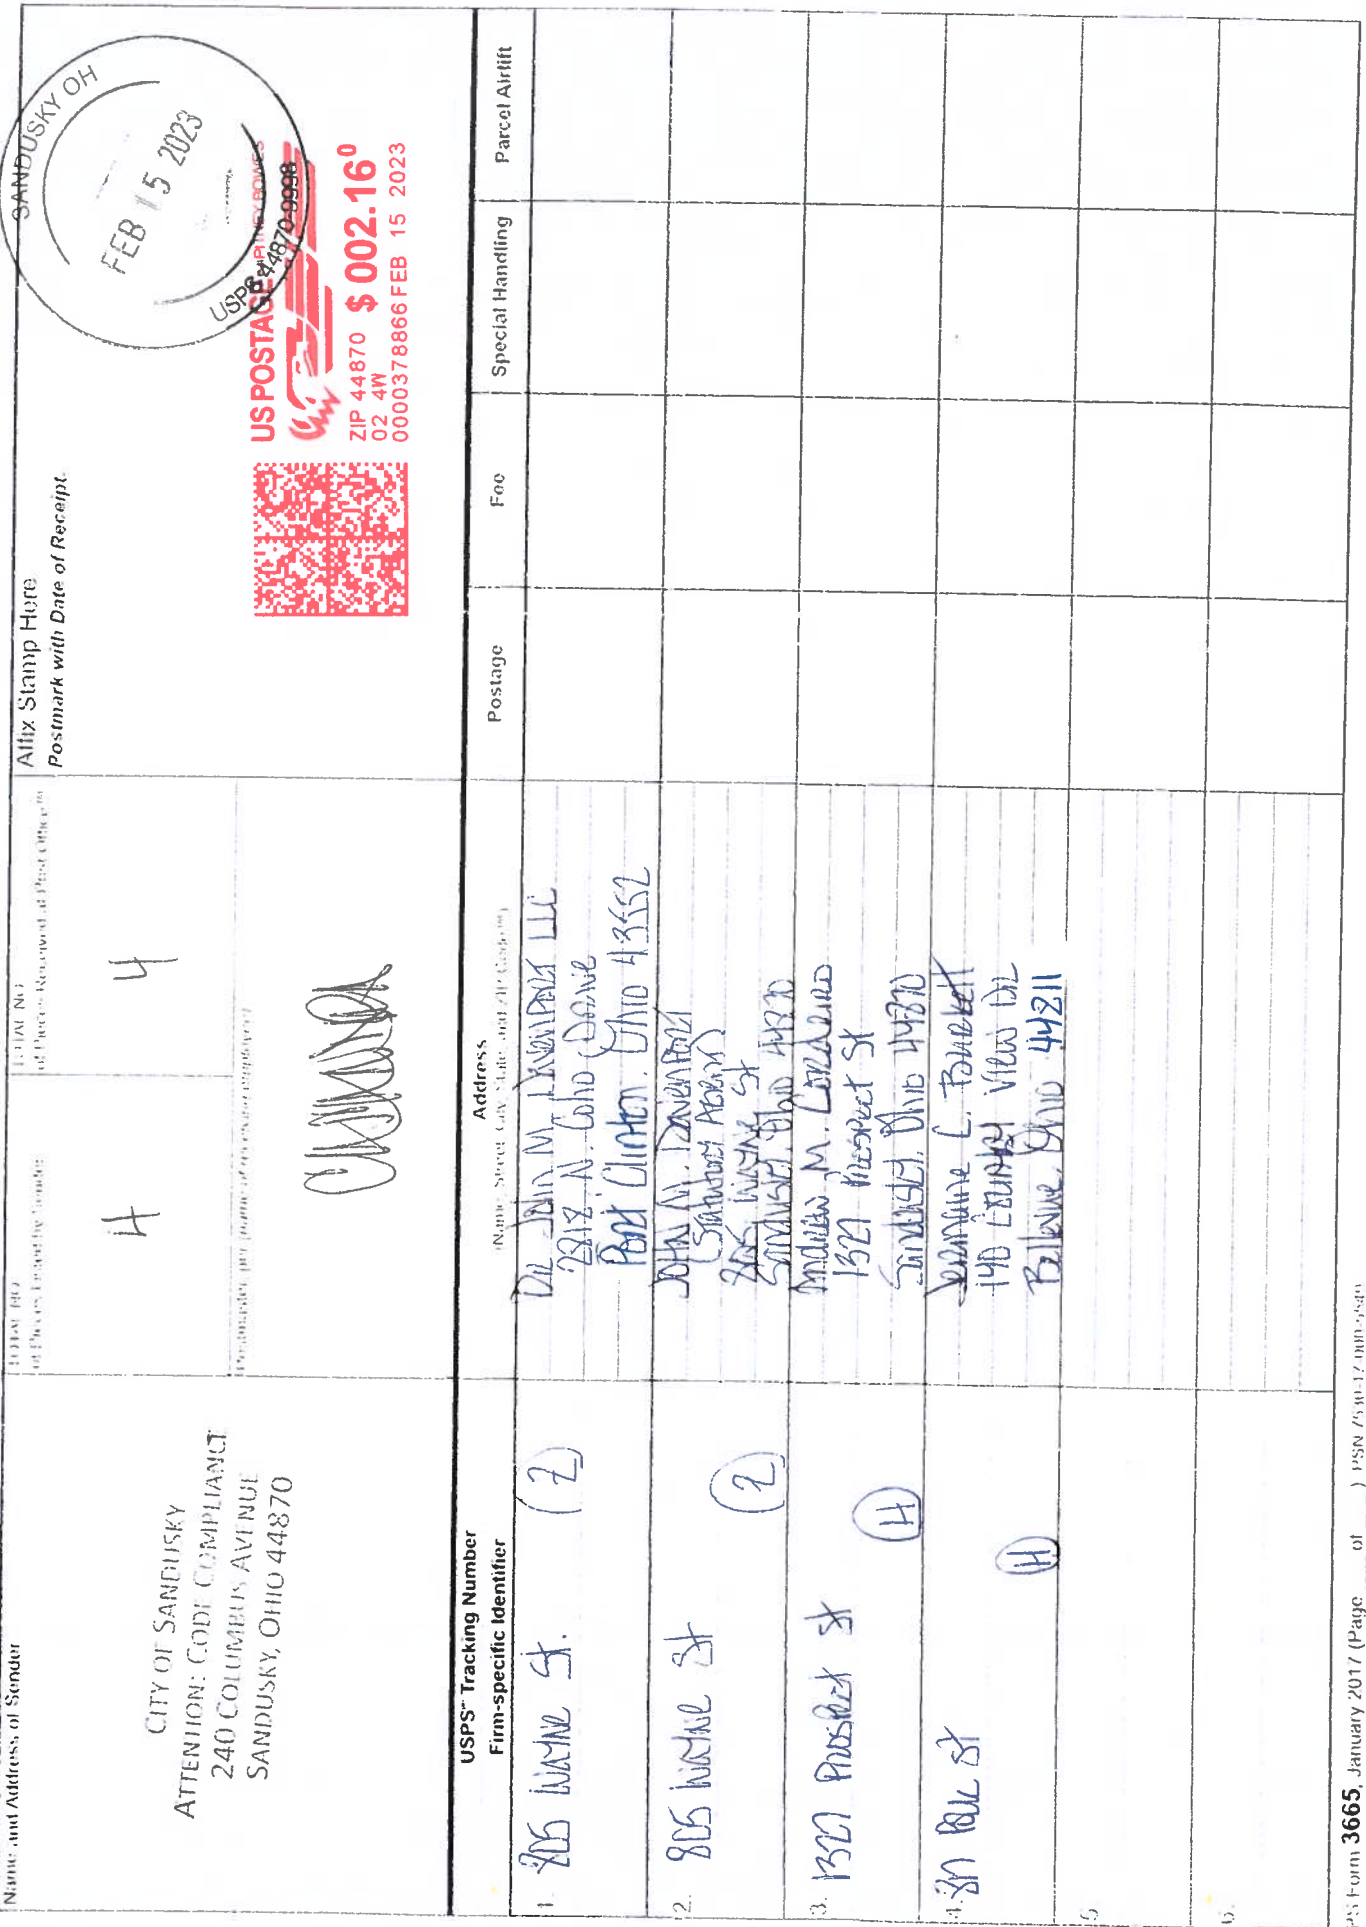 Name and Address of Sender
CITY OF SANDUSKY
ATTENTION: CODE COMPLIANCE
240 COLUMBUS AVENUE
SANDUSKY, OHIO 44870
TOTAL NO.
of Pieces Listed by Sender
4
TOTAL NO.
of Pieces Received at Post Office™
4
Postmaster, per (name of receiving employee)
Affix Stamp Here
Postmark with Date of Receipt.
SANDUSKY OH
FEB 15 2023
USPS 44870-9998
US POSTAGE PITNEY BOWES
ZIP 44870 $ 002.16⁰
02 4W
0000378866 FEB 15 2023
USPS® Tracking Number
Firm-specific Identifier
Address
(Name, Street, City, State, and ZIP Code™)
Postage
Fee
Special Handling
Parcel Airlift
1. 805 Wayne St. (2)
Dr. John M. Davenport LLC
2818 N. Coho Drive
Port Clinton, Ohio 43452
2. 805 Wayne St (2)
John M. Davenport
(Statutory Agent)
805 Wayne St
Sandusky, Ohio 44870
3. 1327 Prospect St (H)
Andrew M.
1327 Prospect St
Sandusky, Ohio 44870
4. St (H)
L. Burkett
140 Country View Dr
Bellevue Ohio 44811
5.
6.
PS Form 3665, January 2017 (Page ___ of ___) PSN 7530-17-000-5549